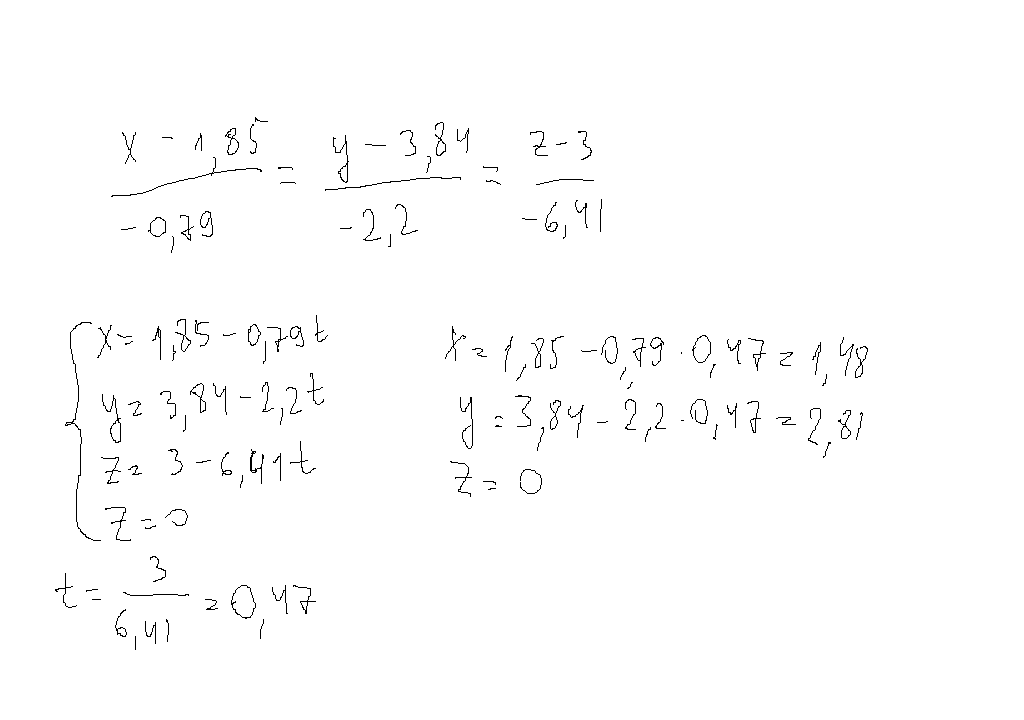 (x - 1,85)/(-0,79) = (y - 3,84)/(-2,2) = (z - 3)/(-6,41)
x = 1,85 - 0,79t
y = 3,84 - 2,2t
z = 3 - 6,41t
z = 0
t = 3/6,41 = 0,47
x = 1,85 - 0,79 · 0,47 = 1,48
y = 3,84 - 2,2 · 0,47 = 2,81
z = 0